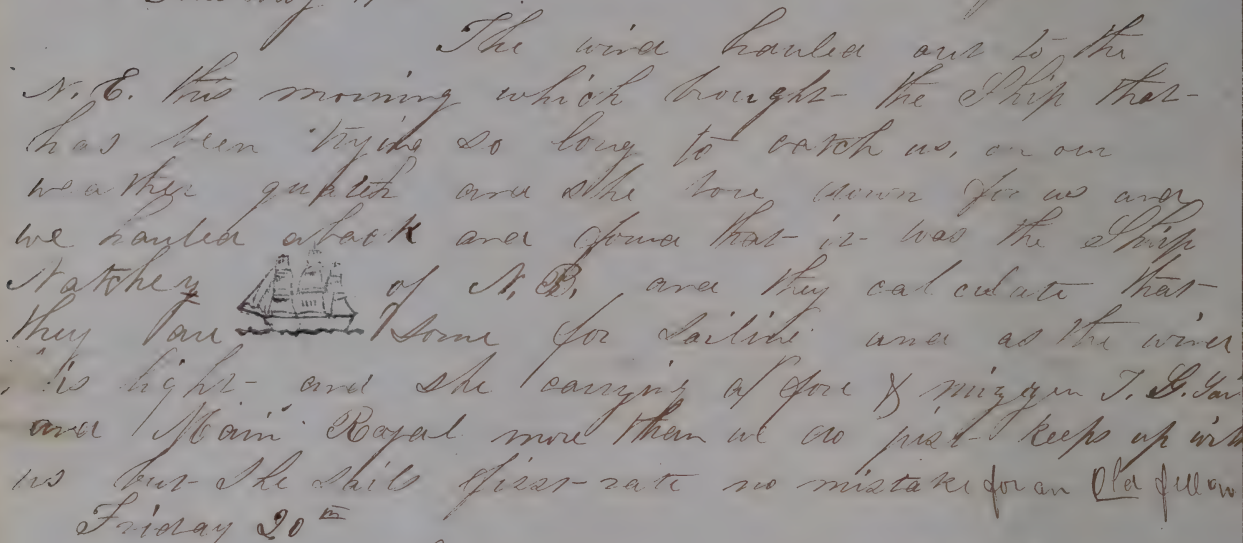 The wind hauled out to the
N. E. this morning which brought the Ship that
has been trying so long to catch us, on our
weather quarter and she bore down for us and
we hauled aback and found that it was the Ship
Natchez of N. B. and they calculate that
they are some for sailing and as the wind
is light and she carrying a fore & mizzen T. G. Sail
and Main Royal more than we do just keeps up with
us but she sails first-rate no mistake for an Old fellow
Friday 20th